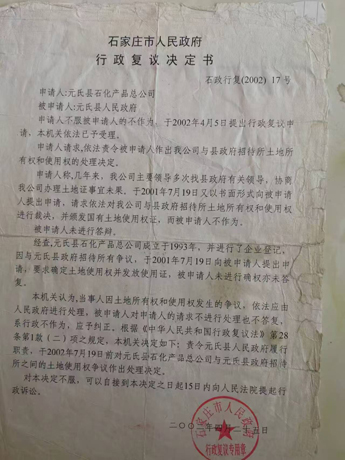 石家庄市人民政府
行政复议决定书
石政行复(2002)17号
申请人:元氏县石化产品总公司
被申请人:元氏县人民政府
申请人不服被申请人的不作为,于2002年4月5日提出行政复议申
请,本机关依法已予受理。
申请人请求,依法责令被申请人作出我公司与县政府招待所土地所
有权和使用权的处理决定。
申请人称,几年来,我公司主要领导多次找县政府有关领导,协商
我公司办理土地证事宜未果。于2001年7月19日又以书面形式向被申请
人提出申请,请求依法对我公司与县政府招待所土地所有权和使用权
进行裁决,并颁发国有土地使用证,而被申请人不作为。
被申请人未进行答辩。
经查,元氏县石化产品总公司成立于1993年,并进行了企业登记,
因与元氏县政府招待所有争议,于2001年7月19日向被申请人提出申
请,要求确定土地使用权并发放使用证,被申请人未进行确权亦未答
复。
本机关认为,当事人因土地所有权和使用权发生的争议,依法应由
人民政府进行处理,被申请人对申请人的请求不进行处理也不答复,
系行政不作为,应予纠正,根据《中华人民共和国行政复议法》第28
条第1款(二)项之规定,本机关决定如下:责令元氏县人民政府履行
职责,于2002年7月19日前对元氏县石化产品总公司与元氏县政府招待
所之间的土地使用权争议作出处理决定。
对本决定不服,可以自接到本决定之日起15日内向人民法院提起行
政诉讼。
石家庄市人民政府
行政复议专用章
二〇〇二年 月二十五日